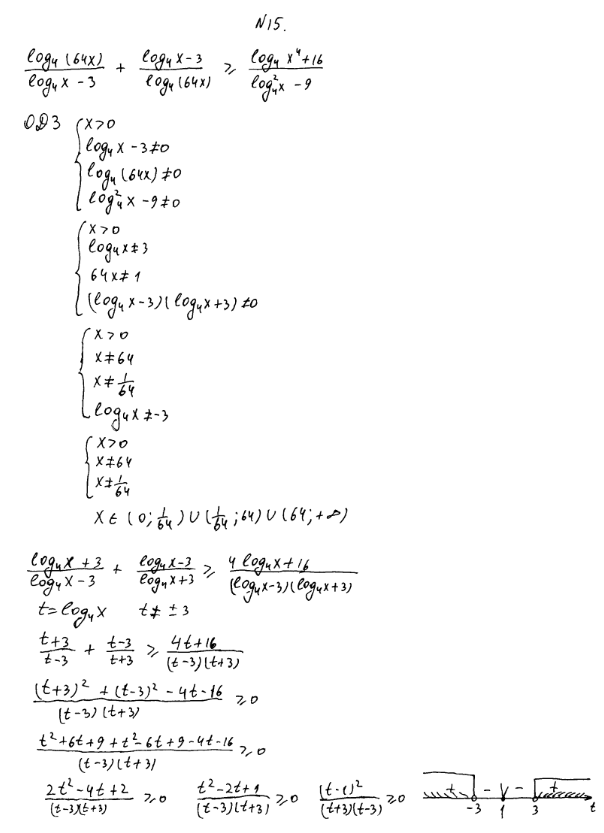 N15.
log₄(64x)/(log₄x - 3) + (log₄x - 3)/log₄(64x) ≥ (log₄x⁴ + 16)/(log₄²x - 9)
ОДЗ { x > 0
log₄x - 3 ≠ 0
log₄(64x) ≠ 0
log₄²x - 9 ≠ 0
{ x > 0
log₄x ≠ 3
64x ≠ 1
(log₄x - 3)(log₄x + 3) ≠ 0
{ x > 0
x ≠ 64
x ≠ 1/64
log₄x ≠ -3
{ x > 0
x ≠ 64
x ≠ 1/64
x ∈ (0; 1/64) ∪ (1/64; 64) ∪ (64; +∞)
(log₄x + 3)/(log₄x - 3) + (log₄x - 3)/(log₄x + 3) ≥ (4log₄x + 16)/((log₄x - 3)(log₄x + 3))
t = log₄x t ≠ ±3
(t+3)/(t-3) + (t-3)/(t+3) ≥ (4t+16)/((t-3)(t+3))
((t+3)² + (t-3)² - 4t - 16)/((t-3)(t+3)) ≥ 0
(t² + 6t + 9 + t² - 6t + 9 - 4t - 16)/((t-3)(t+3)) ≥ 0
(2t² - 4t + 2)/((t-3)(t+3)) ≥ 0 (t² - 2t + 1)/((t-3)(t+3)) ≥ 0 (t-1)²/((t+3)(t-3)) ≥ 0 + - - + -3 1 3 t